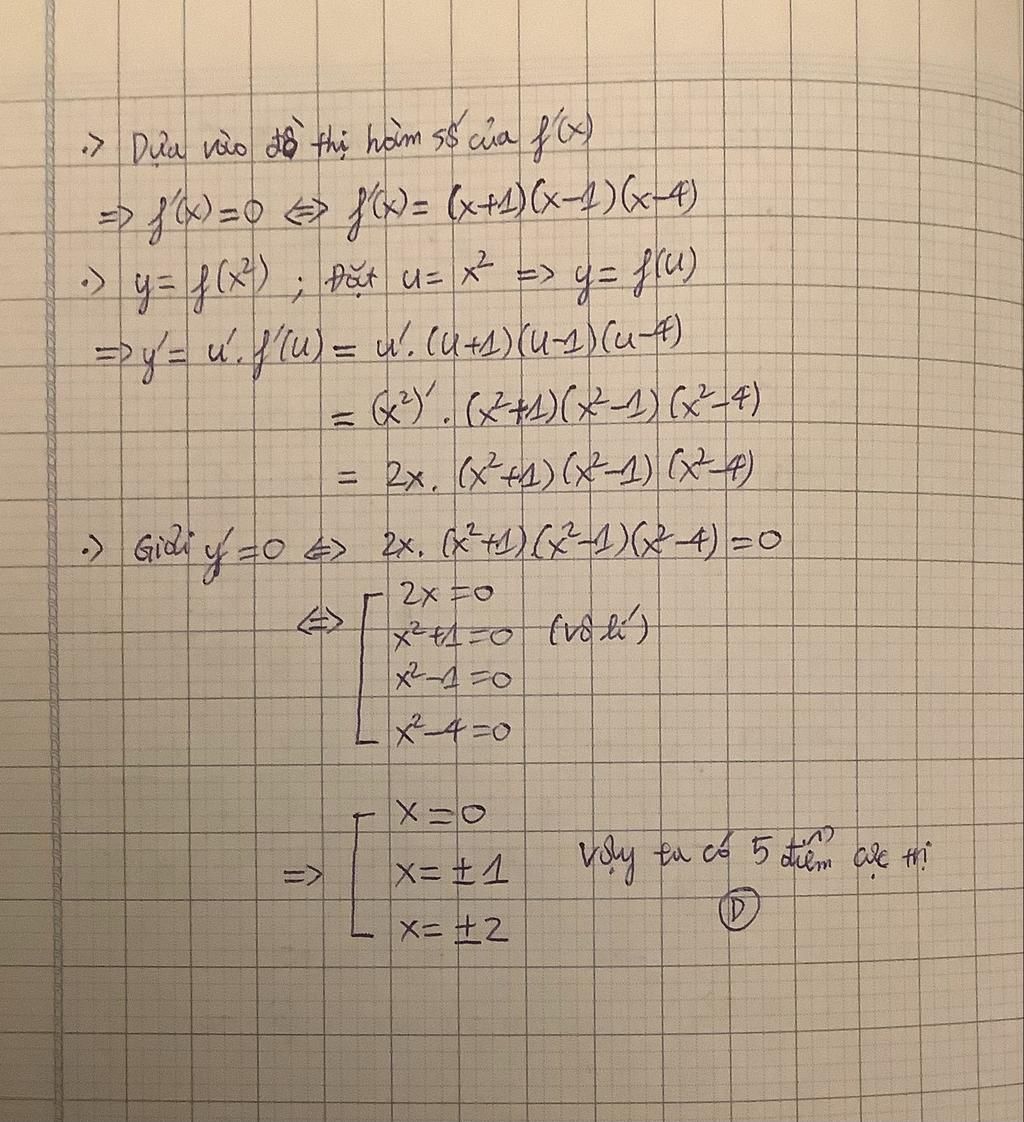 ·> Dựa vào đồ thị hàm số của f'(x)
=> f'(x)=0 <=> f'(x)= (x+1)(x-1)(x-4)
·> y= f(x²) ; Đặt u= x² => y= f(u)
=> y'= u'. f'(u) = u'. (u+1)(u-1)(u-4)
= (x²)'. (x²+1)(x²-1)(x²-4)
= 2x. (x²+1)(x²-1)(x²-4)
·> Giải y'=0 <=> 2x. (x²+1)(x²-1)(x²-4)=0
<=> [ 2x=0
x²+1=0 (vô lí)
x²-1=0
x²-4=0
=> [ x=0
x=±1 Vậy ta có 5 điểm cực trị
x=±2 D